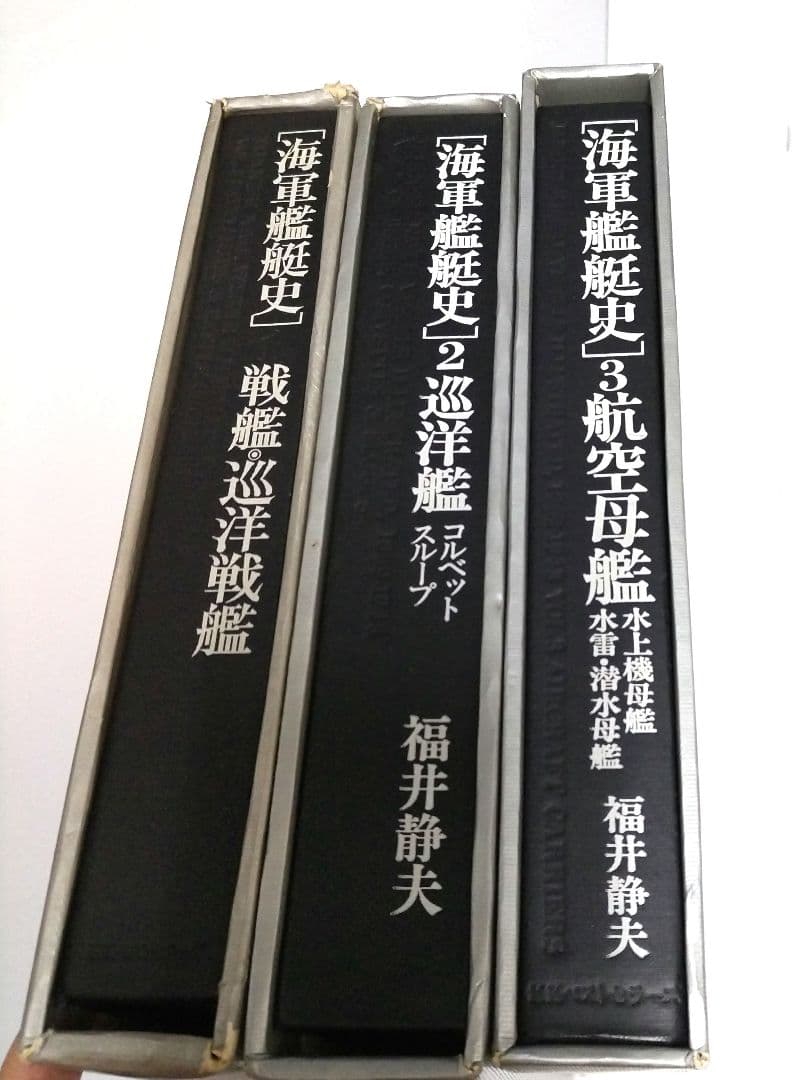 [海軍艦艇史]
戦艦・巡洋戦艦
[海軍艦艇史]2巡洋艦
コルベット
スループ
福井静夫
[海軍艦艇史]3航空母艦
水上機母艦
水雷・潜水母艦
福井静夫
KKベストセラーズ